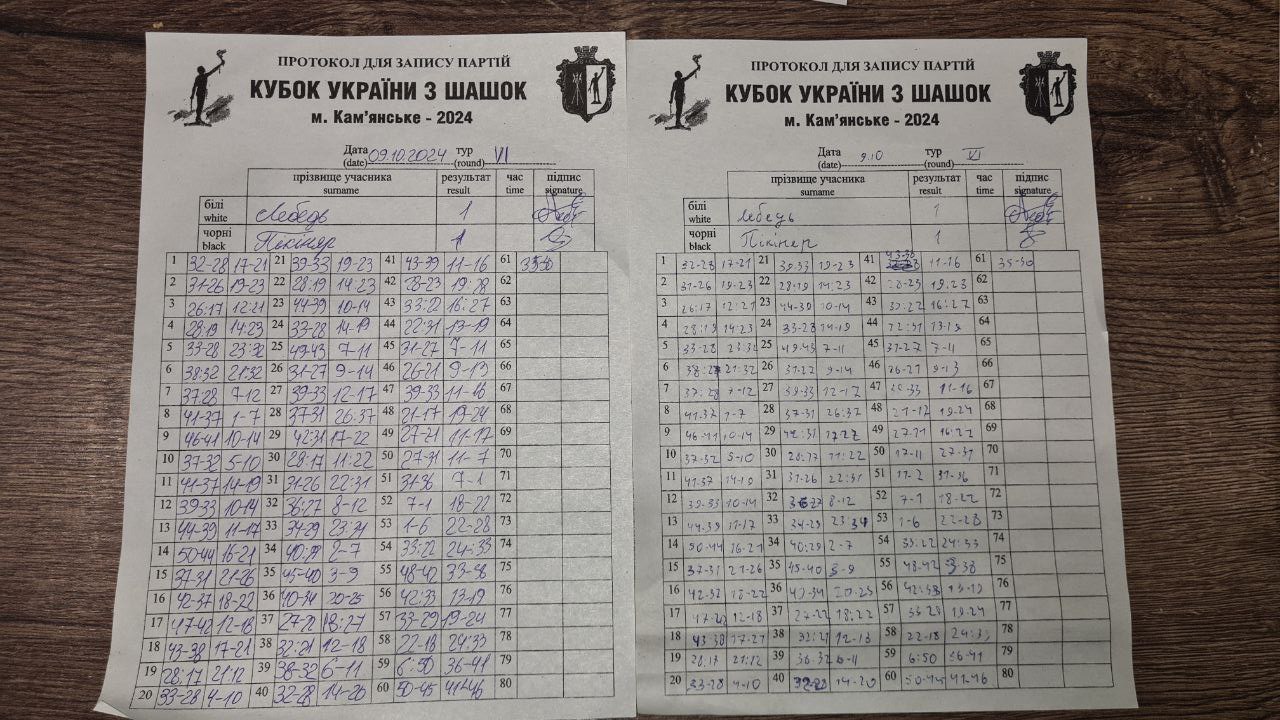 ПРОТОКОЛ ДЛЯ ЗАПИСУ ПАРТІЙ
КУБОК УКРАЇНИ З ШАШОК
м. Кам'янське - 2024
Дата 09.10.2024 тур VI
(date) (round)
прізвище учасника результат час підпис
surname result time signature
білі Лебедь 1
white
чорні Пікінер 1
black
1 32-28 17-21 21 39-33 19-23 41 43-39 11-16 61
2 31-26 19-23 22 28:19 14:23 42 28-23 19:28 62
3 26:17 12:21 23 44-39 10-14 43 33:22 16:27 63
4 28:19 14:23 24 33-28 14-19 44 22:31 13-19 64
5 33-28 23:32 25 49-43 7-11 45 31-27 7-11 65
6 38:32 21:32 26 31-27 9-14 46 26-21 9-13 66
7 37:28 7-12 27 39-33 12-17 47 39-33 11-16 67
8 41-37 1-7 28 37-31 26:37 48 21-17 19-24 68
9 46-41 10-14 29 42:31 17-22 49 27-21 69
10 37-32 5-10 30 28:17 11:22 50 70
11 41-37 14-19 31 31-26 22:31 51 71
12 39-33 10-14 32 36:27 8-12 52 7-1 18-22 72
13 44-39 11-17 33 34-29 23:34 53 1-6 22-28 73
14 50-44 16-21 34 40:29 2-7 54 33:22 24-33 74
15 37-31 21-26 35 45-40 3-9 55 48-42 75
16 42-37 18-22 36 40-34 20-25 56 42:33 13-19 76
17 47-42 12-18 37 27-21 18:27 57 33-29 19-24 77
18 43-38 17-21 38 32:21 12-18 58 22-18 24:33 78
19 28:17 21:12 39 38-32 6-11 59 6:50 36-41 79
20 33-28 4-10 40 32-28 14-20 60 50-45 41-46 80
ПРОТОКОЛ ДЛЯ ЗАПИСУ ПАРТІЙ
КУБОК УКРАЇНИ З ШАШОК
м. Кам'янське - 2024
Дата 9.10 тур VI
(date) (round)
прізвище учасника результат час підпис
surname result time signature
білі Лебедь 1
white
чорні Пікінер 1
black
1 32-28 17-21 21 39-33 19-23 41 43-39 11-16 61 35-30
2 31-26 19-23 22 28:19 14:23 42 28-23 19:28 62
3 26:17 12:21 23 44-39 10-14 43 33:22 16:27 63
4 28:19 14:23 24 33-28 14-19 44 22:31 13-19 64
5 33-28 23:32 25 49-43 7-11 45 31-27 7-11 65
6 21:32 26 31-27 9-14 46 26-21 9-13 66
7 37:28 7-12 27 39-33 12-17 47 39-33 11-16 67
8 41-37 1-7 28 37-31 26:37 48 21-17 19-24 68
9 46-41 10-14 29 42:31 17-22 49 27-21 16:27 69
10 37-32 5-10 30 28:17 11:22 50 17-11 27-31 70
11 41-37 14-19 31 31-26 22:31 51 11-7 31-36 71
12 39-33 10-14 32 36:27 8-12 52 7-1 18-22 72
13 44-39 11-17 33 34-29 23:34 53 1-6 22-28 73
14 50-44 16-21 34 40:29 2-7 54 33:22 24:33 74
15 37-31 21-26 35 45-40 3-9 55 48-42 75
16 42-37 18-22 36 40-34 20-25 56 42:38 13-19 76
17 47-42 12-18 37 27-22 18:22 57 33-29 19-24 77
18 43-38 17-21 38 32:21 12-18 58 22-18 78
19 28:17 21:12 39 38-32 6-11 59 6:50 36-41 79
20 33-28 4-10 40 14-20 60 41-46 80